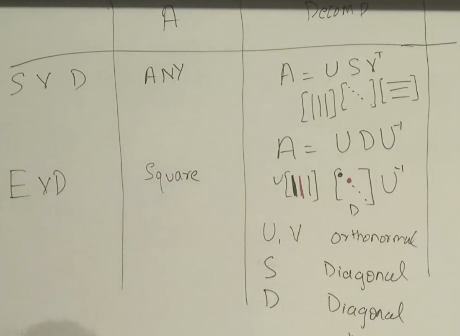 A Decomp
SVD ANY A = U S Vᵀ
A = U D U⁻¹
EVD Square U U⁻¹
D
U, V orthonormal
S Diagonal
D Diagonal